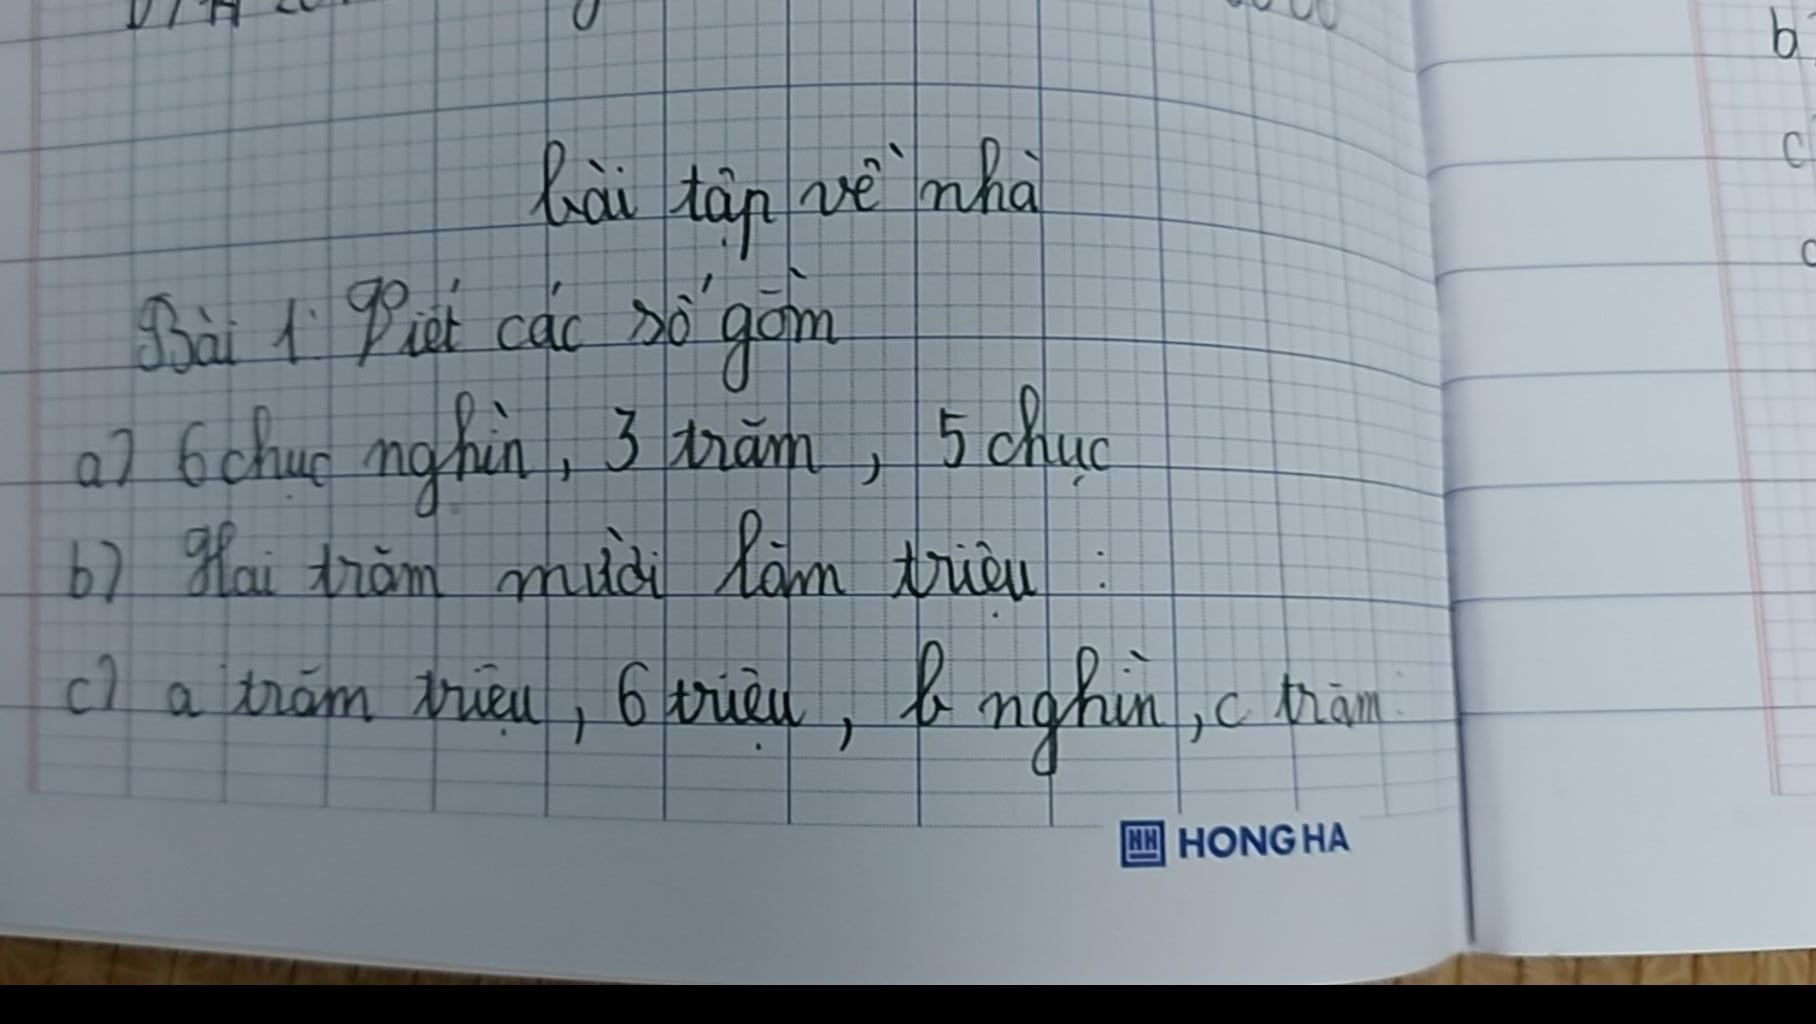 bài tập về nhà
Bài 1: Viết các số gồm
a) 6 chục nghìn, 3 trăm, 5 chục
b) Hai trăm mười lăm triệu :
c) a trăm triệu, 6 triệu, b nghìn, c trăm
HONG HA
b
c